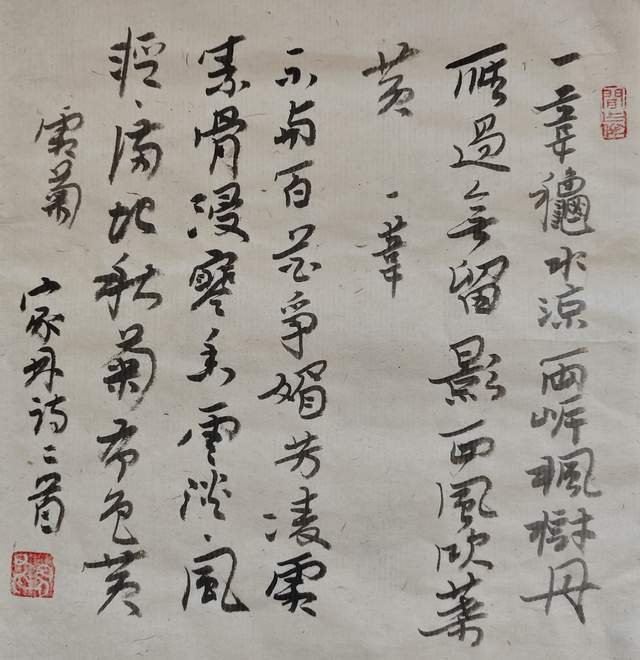 一葦穐水涼兩岸楓樹丹
雁過無留影西風吹葉
黃 一葦
不與百花爭媚芳凌霜
素骨浸寒香雲淡、風
輕、滿地秋菊布色黃
霜菊
家丹詩二首